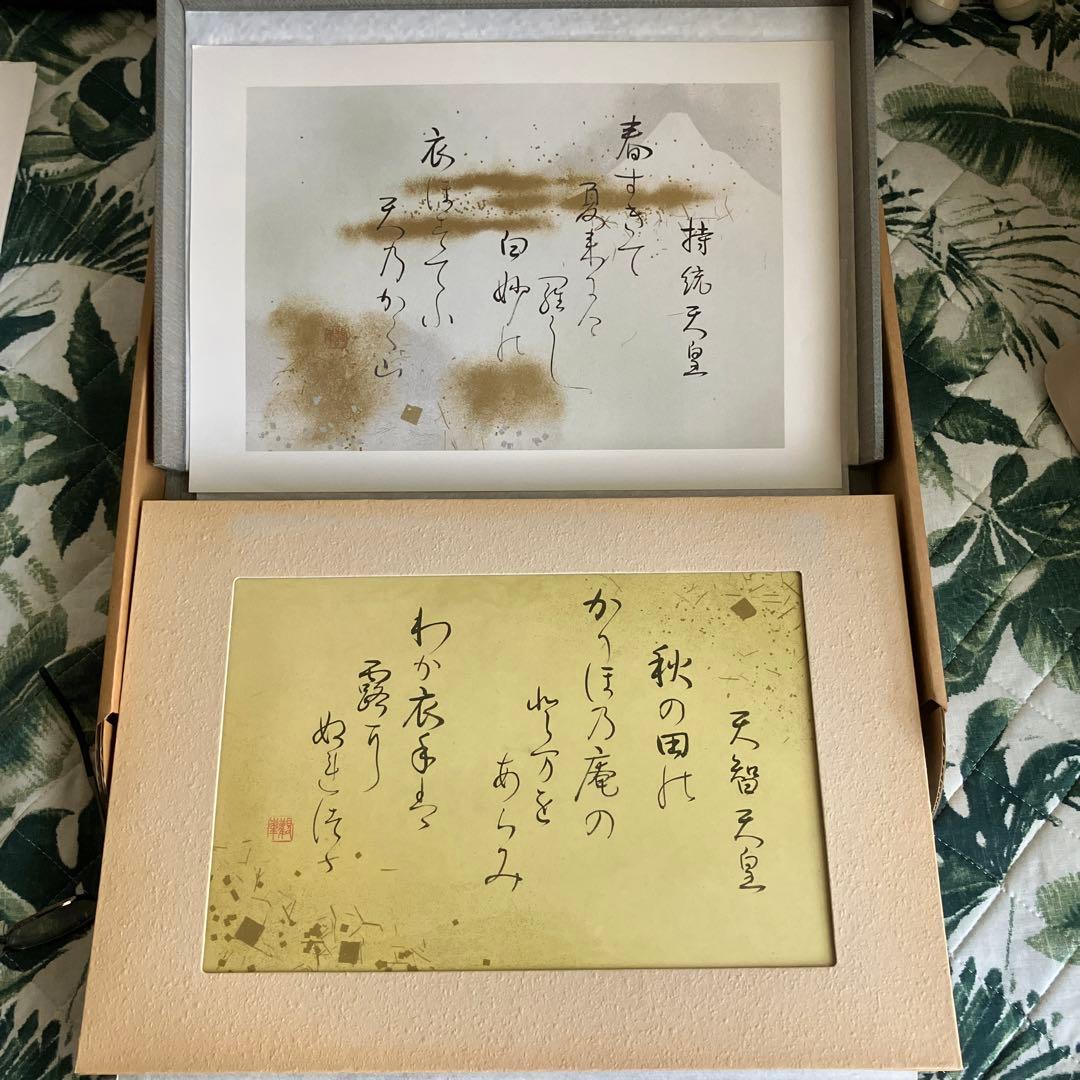 持統天皇
春すきて
夏来にけ
羅し
白妙の
衣ほすてふ
天乃かく山
天智天皇
秋の田の
かりほ乃庵の
とまを
あらみ
わか衣手は
露に
ぬれつつ